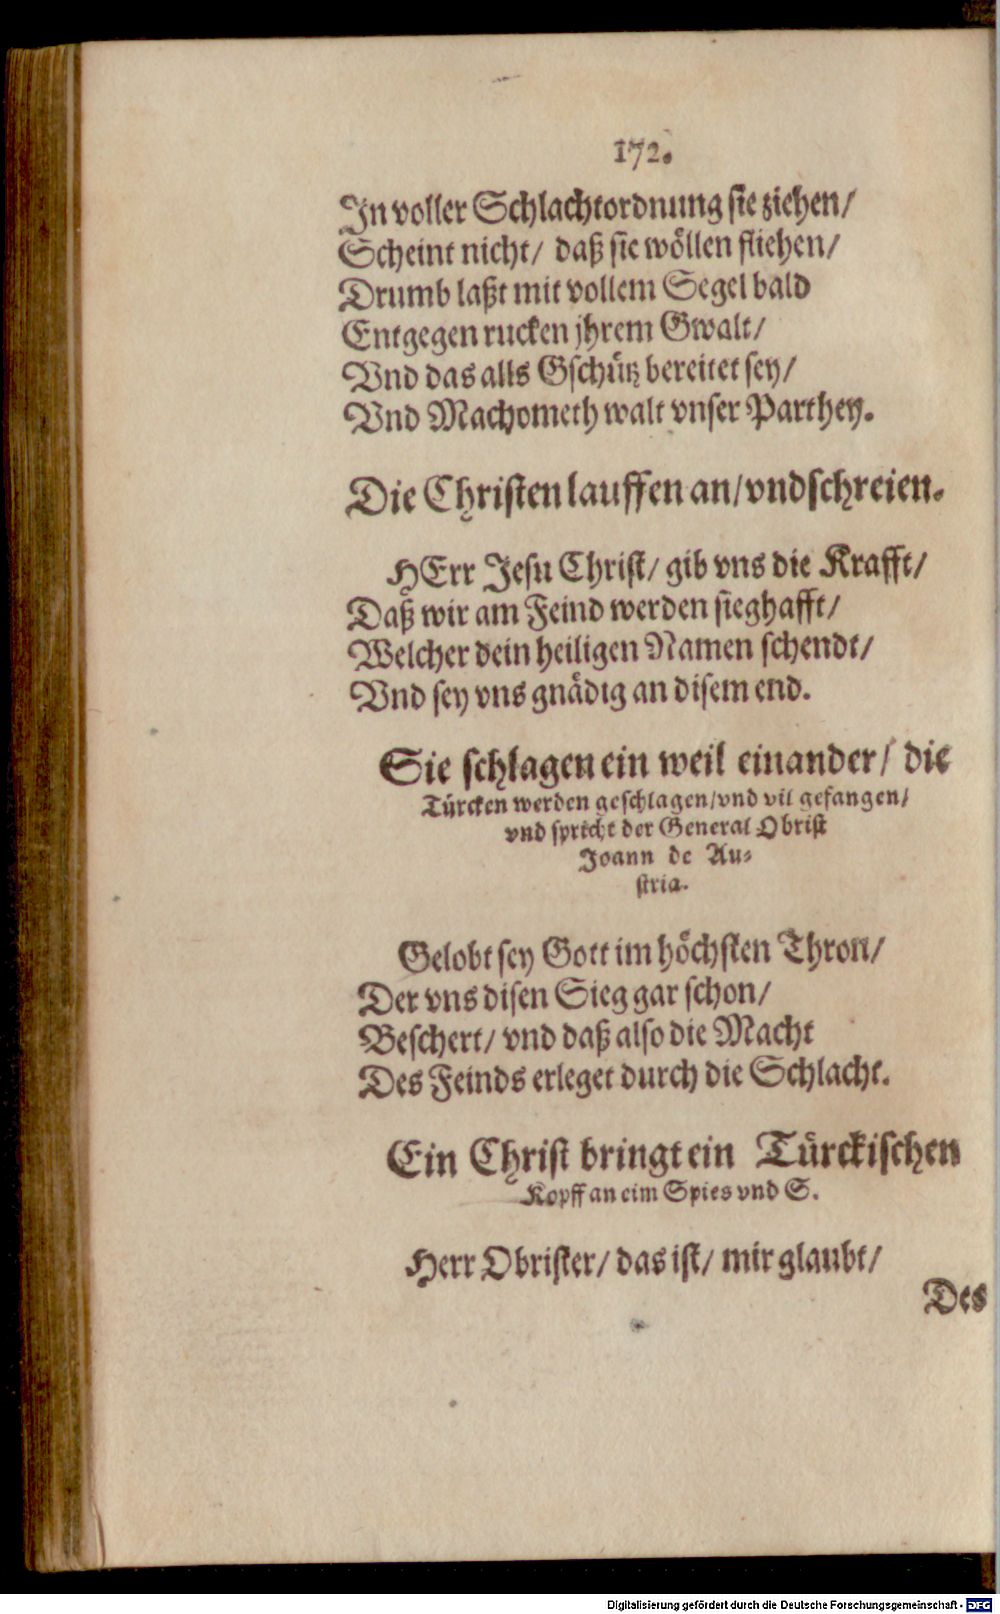 172.
In voller Schlachtordnung sie ziehen/
Scheint nicht/ daß sie wöllen fliehen/
Drumb laßt mit vollem Segel bald
Entgegen rucken jhrem Gwalt/
Vnd das alls Gschütz bereitet sey/
Vnd Machometh walt vnser Parthey.
Die Christen lauffen an/ vnd schreien.
HErr Jesu Christ/ gib vns die Krafft/
Daß wir am Feind werden sieghafft/
Welcher dein heiligen Namen schendt/
Vnd sey vns gnädig an disem end.
Sie schlagen ein weil einander/ die
Türcken werden geschlagen/ vnd vil gefangen/
vnd spricht der General Obrist
Joann de Au-
stria.
Gelobt sey Gott im höchsten Thron/
Der vns disen Sieg gar schon/
Beschert/ vnd daß also die Macht
Des Feinds erleget durch die Schlacht.
Ein Christ bringt ein Türckischen
Kopff an eim Spies vnd S.
Herr Obrister/ das ist/ mir glaubt/
Des
Digitalisierung gefördert durch die Deutsche Forschungsgemeinschaft - DFG